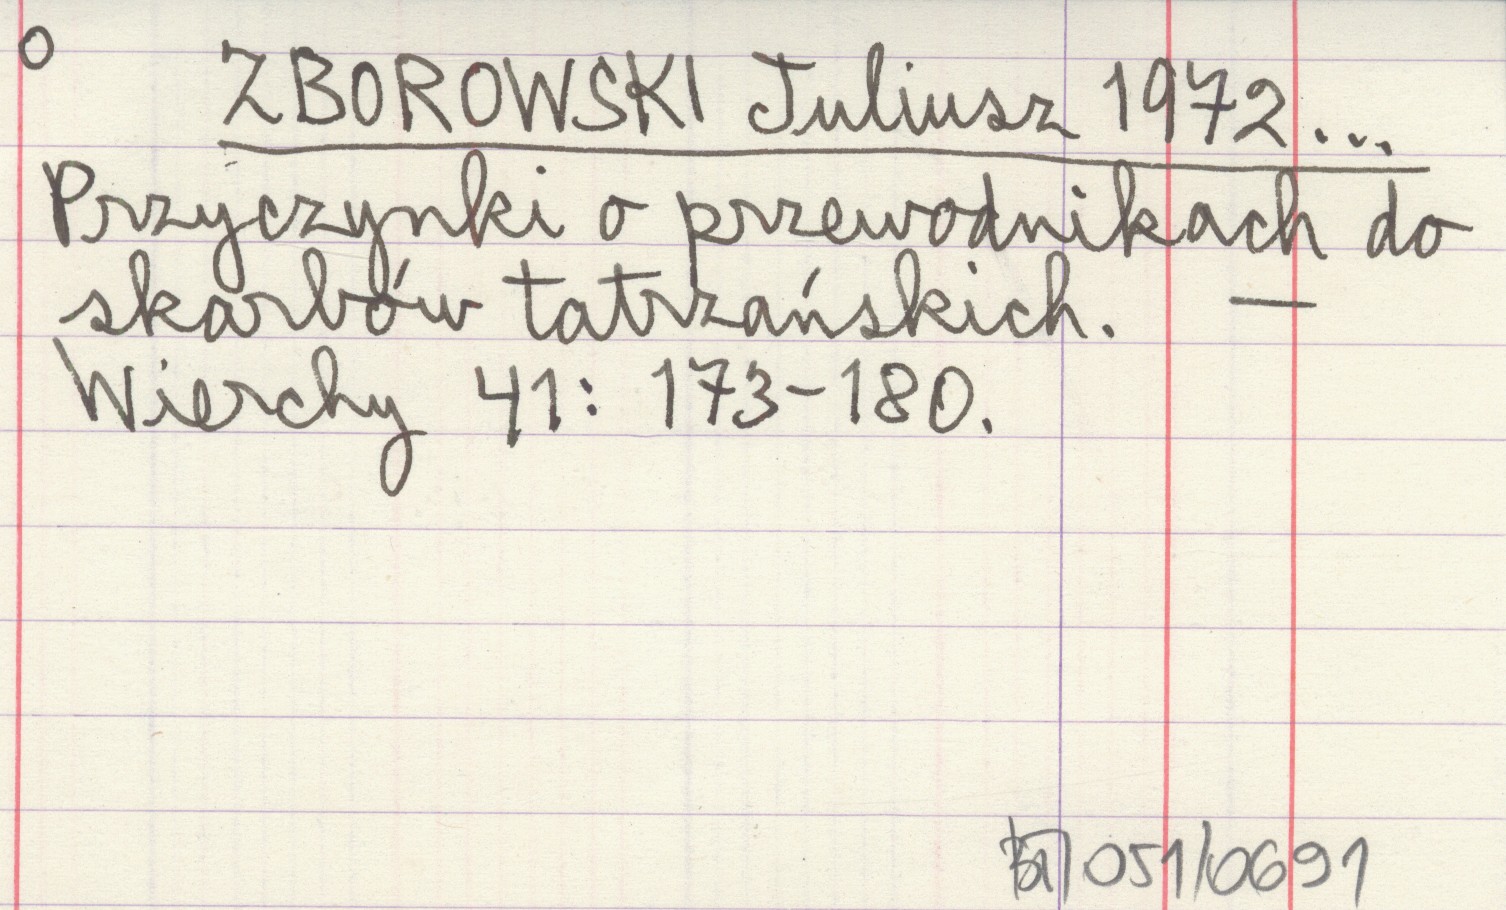 o ZBOROWSKI Juliusz 1972...
Przyczynki o przewodnikach do
skarbów tatrzańskich. —
Wierchy 41: 173-180.
051/0691